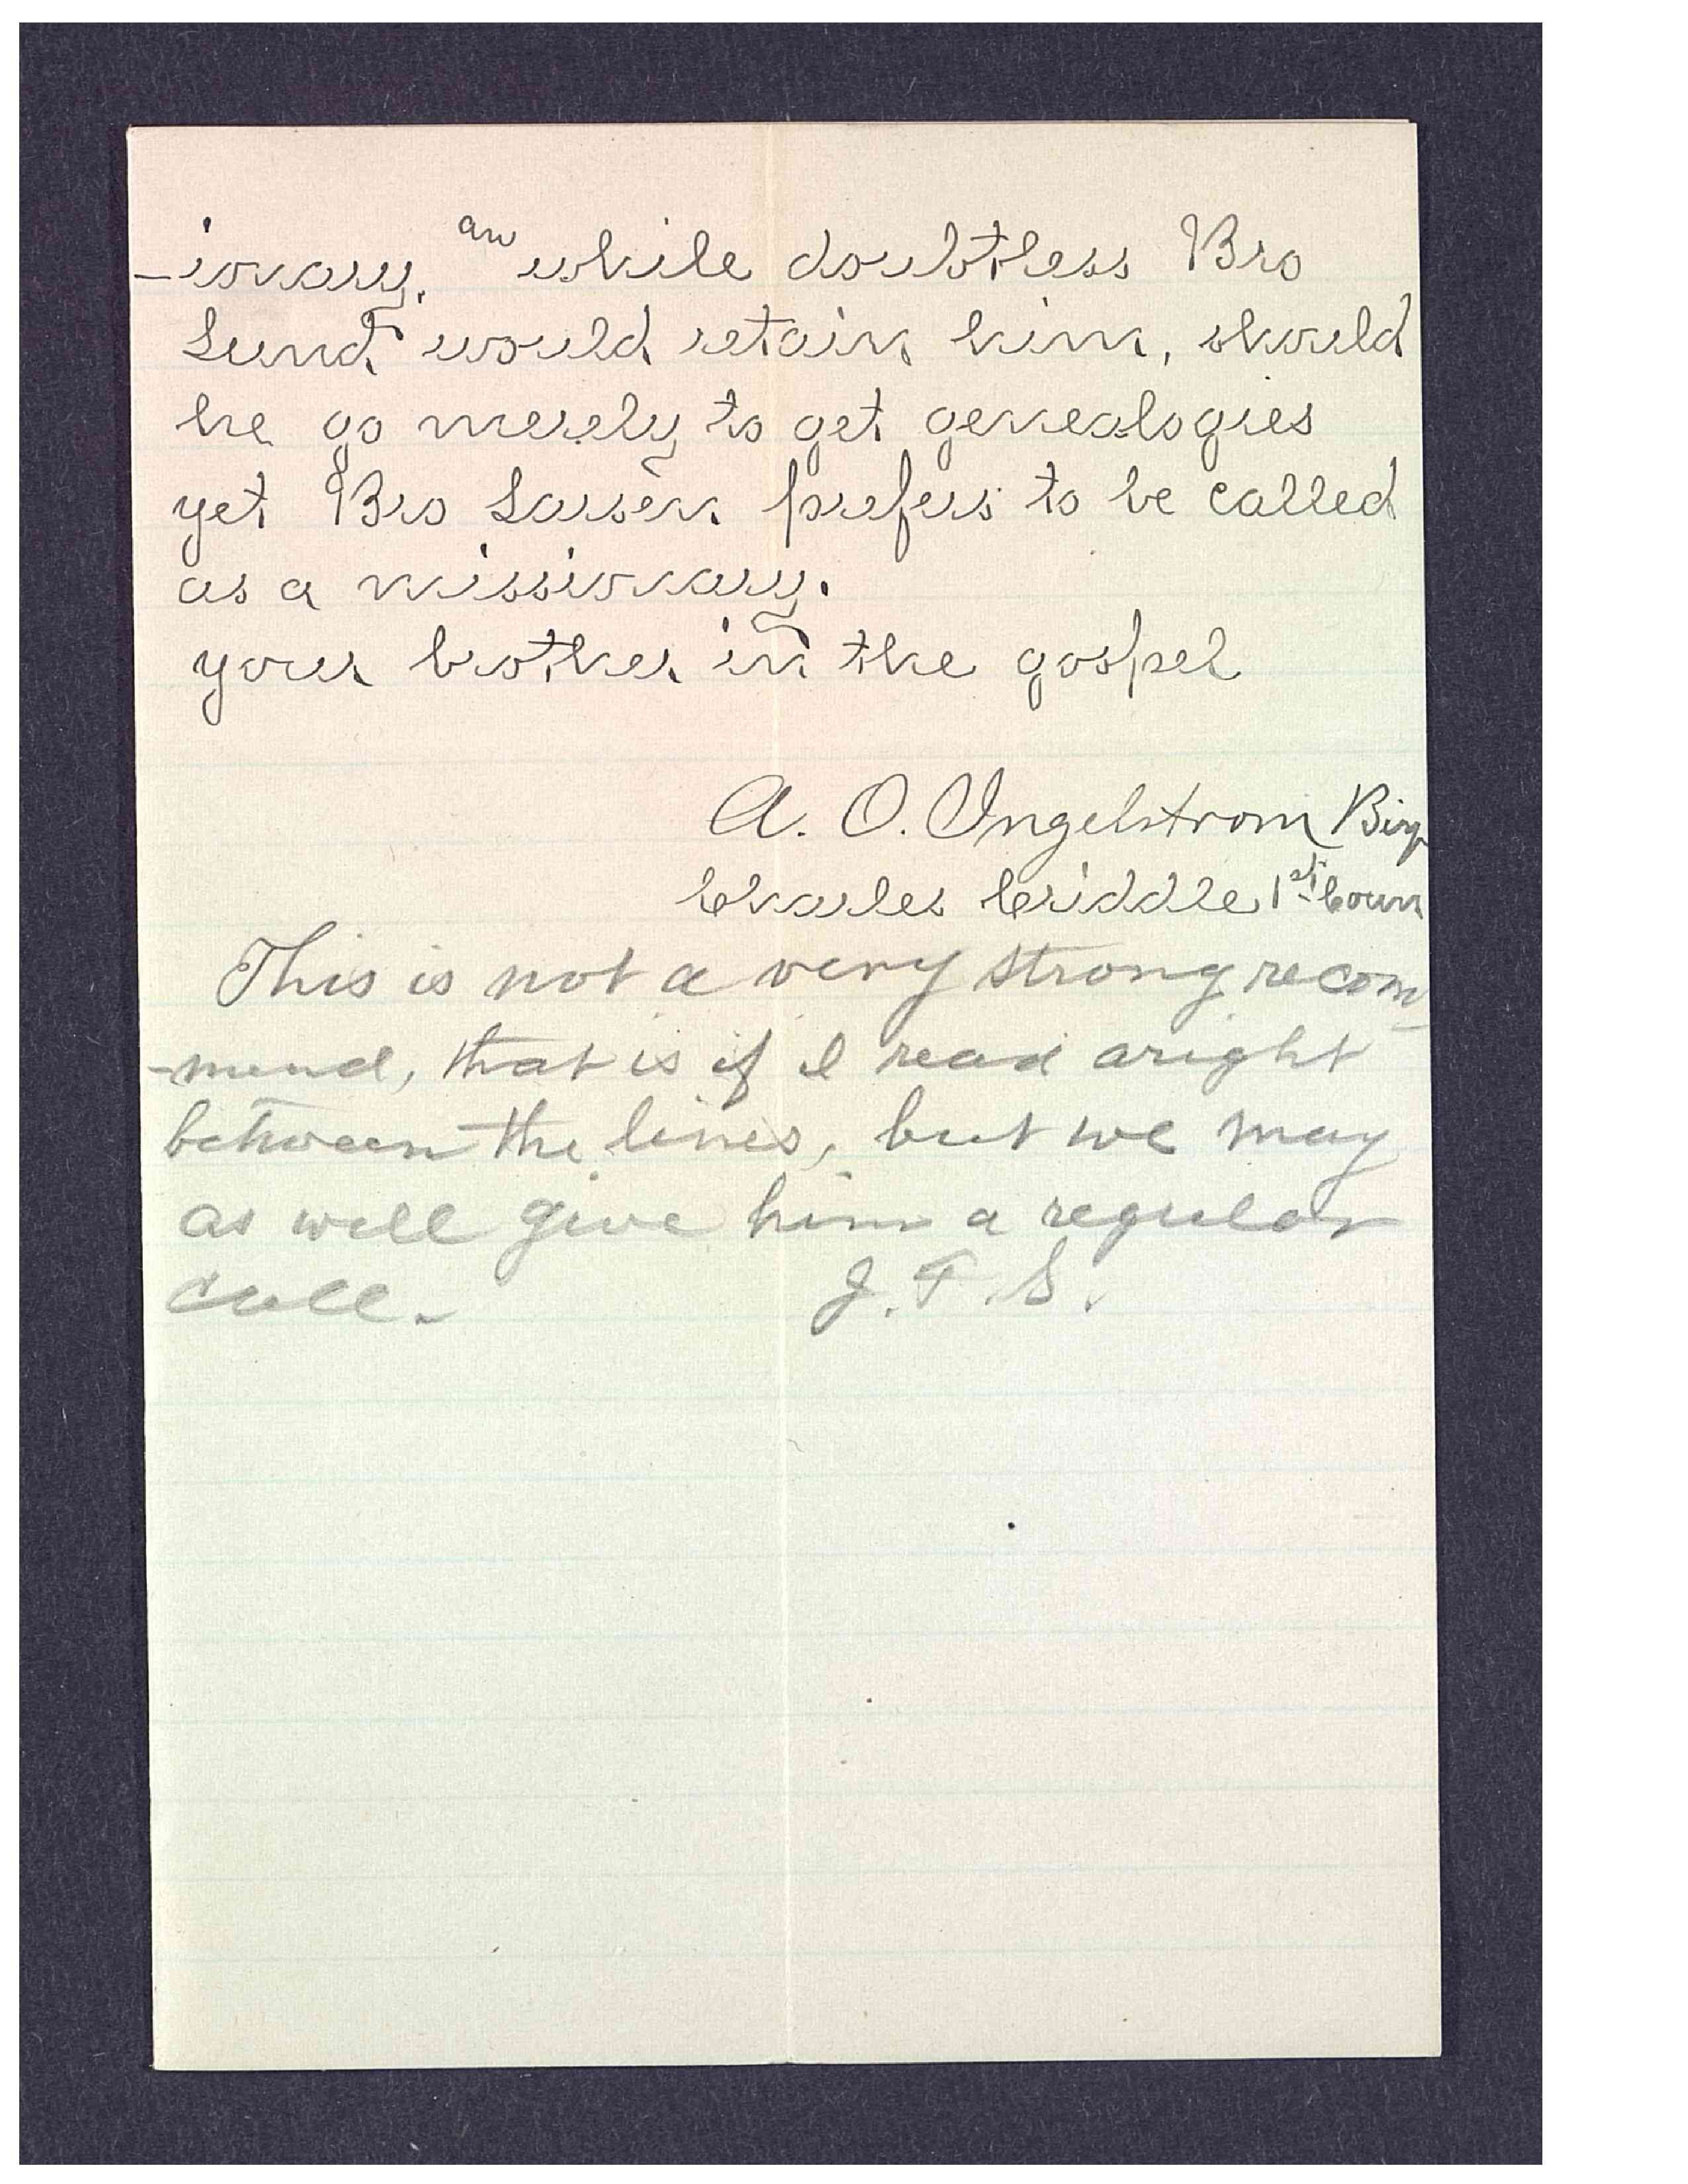 -ionary. an while doubtless Bro
Lund would retain him, should
he go merely to get genealogies
yet Bro Larsen prefers to be called
as a missionary.
your brother in the gospel
A. O. Ingelstrom Bisp
Charles Criddle 1st Coun
This is not a very strong recom
-mend, that is if I read aright
between the lines, but we may
as well give him a regular
call. J. F. S.